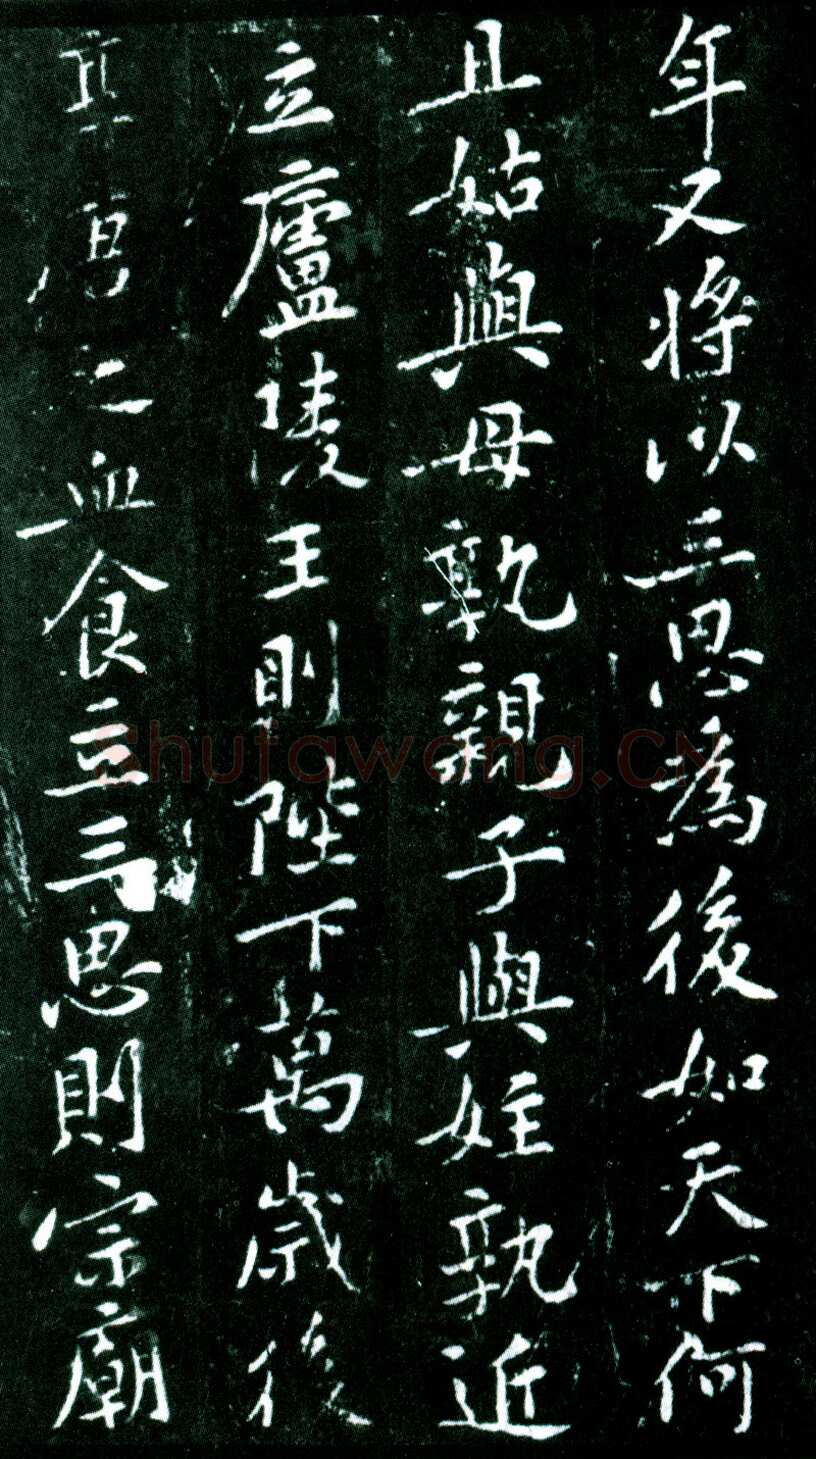 年又將以三思為後如天下何
且姑與母孰親子與姪孰近
立廬陵王則陛下萬歲後
享唐之血食立三思則宗廟
Shufawang.CN